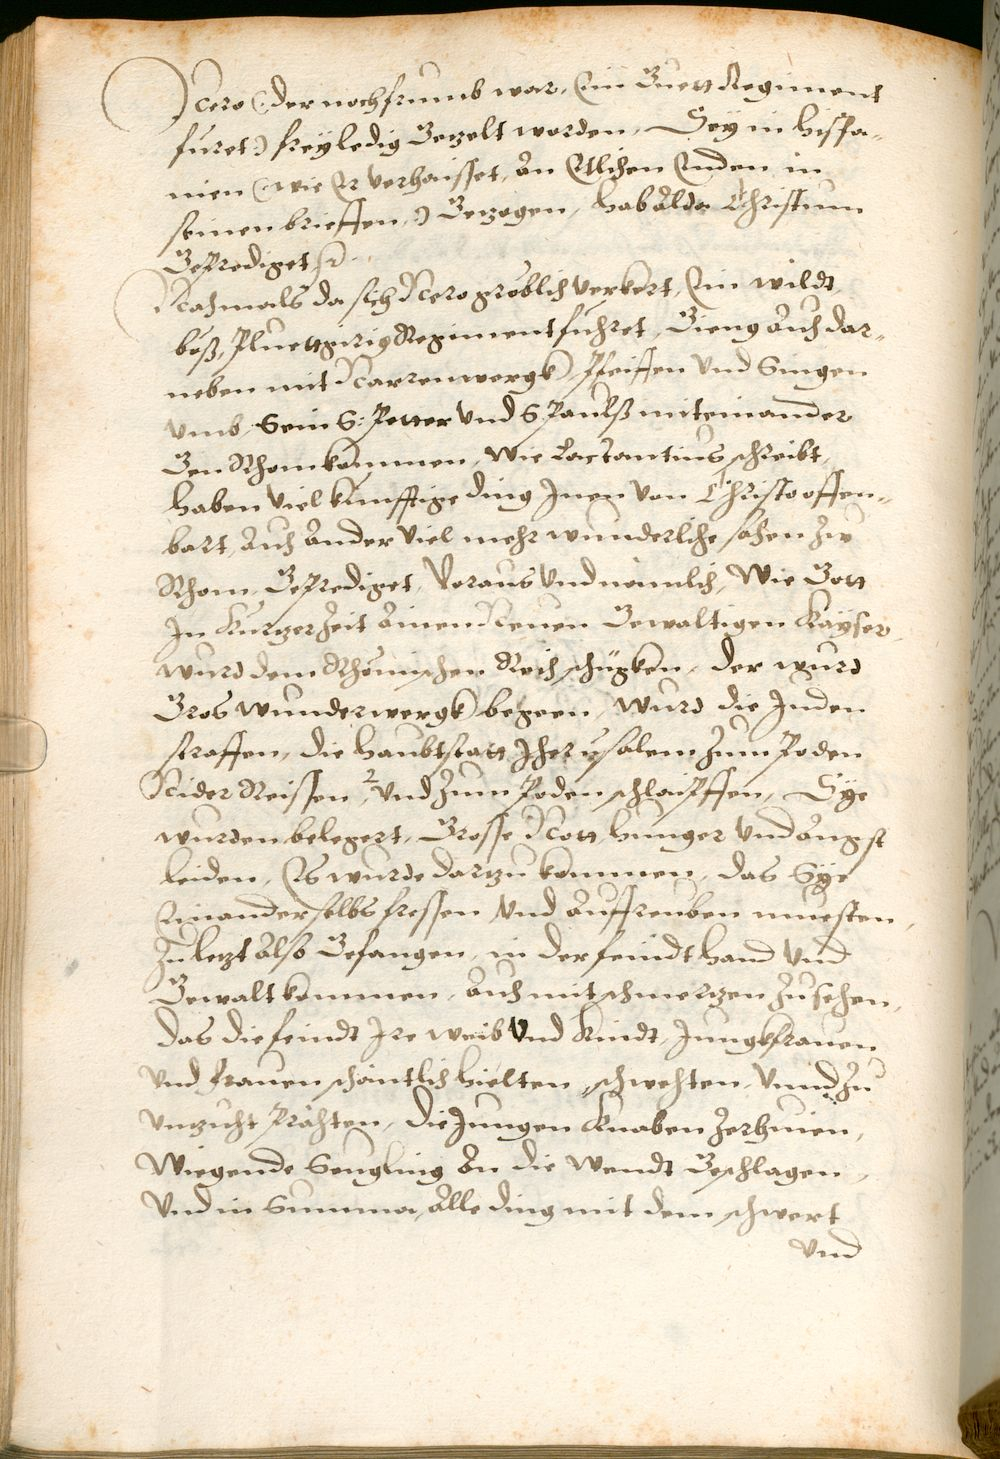 Nero (: der noch frumb war, Ein Guett Regiment
furet :) frey ledig Gezelt worden, Sey in Hispa=
nien (: wie Er verhaisset, an Etlichen Enden in
seinen brieffen, :) Gezogen, hab alda Christum
Geprediget
Nachmals da sich Nero gröblich verkert, Ein wildt,
böß, Pluettgirig Regiment fuhret, Gieng auch dar=
neben mit Narrenwergk Pfeiffen Und Singen
Umb, Sein S: Petter Und S Paulß miteinander
Gen Rhom kommen, Wie Lactantius schreibt,
haben Viel künfftige ding Inen Von Christo offen=
bart, Auch Ander Viel mehr wunderliche sachen Zw
Rhom, Geprediget, Voraus Und nemlich, Wie Gott
In kurzer Zeit Ainen Neuen Gewaltigen Kayser
wurd dem Rhömischen Reich schicken, der wurd
Gros Wunderwergk begeen, Wurd die Juden
straffen, die Haubtstatt Iherusalem Zum Poden
Nider Reissen, Und Zum Poden schlaipffen, Sye
wurden belegert, Grosse Nott, hunger Und Angst
leiden, Es wurde dartzu kommen, das Sye
Einander selbs fressen Und Auffreuben muesten,
Zu letzt Also Gefangen, in der feindt Hand Und
Gewalt kommen, Auch mit schmertzen Zusehen,
das die feindt Ire Weib Und Kindt, Jungkfrauen
Und frauen schantlich hielten, schwechten, Unnd Zu
Unzucht Prachten, die Jungen Knaben Zerhauen,
Wiegende Seugling An die Wendt Geschlagen,
Und in Summa, Alle ding mit dem schwert
Und